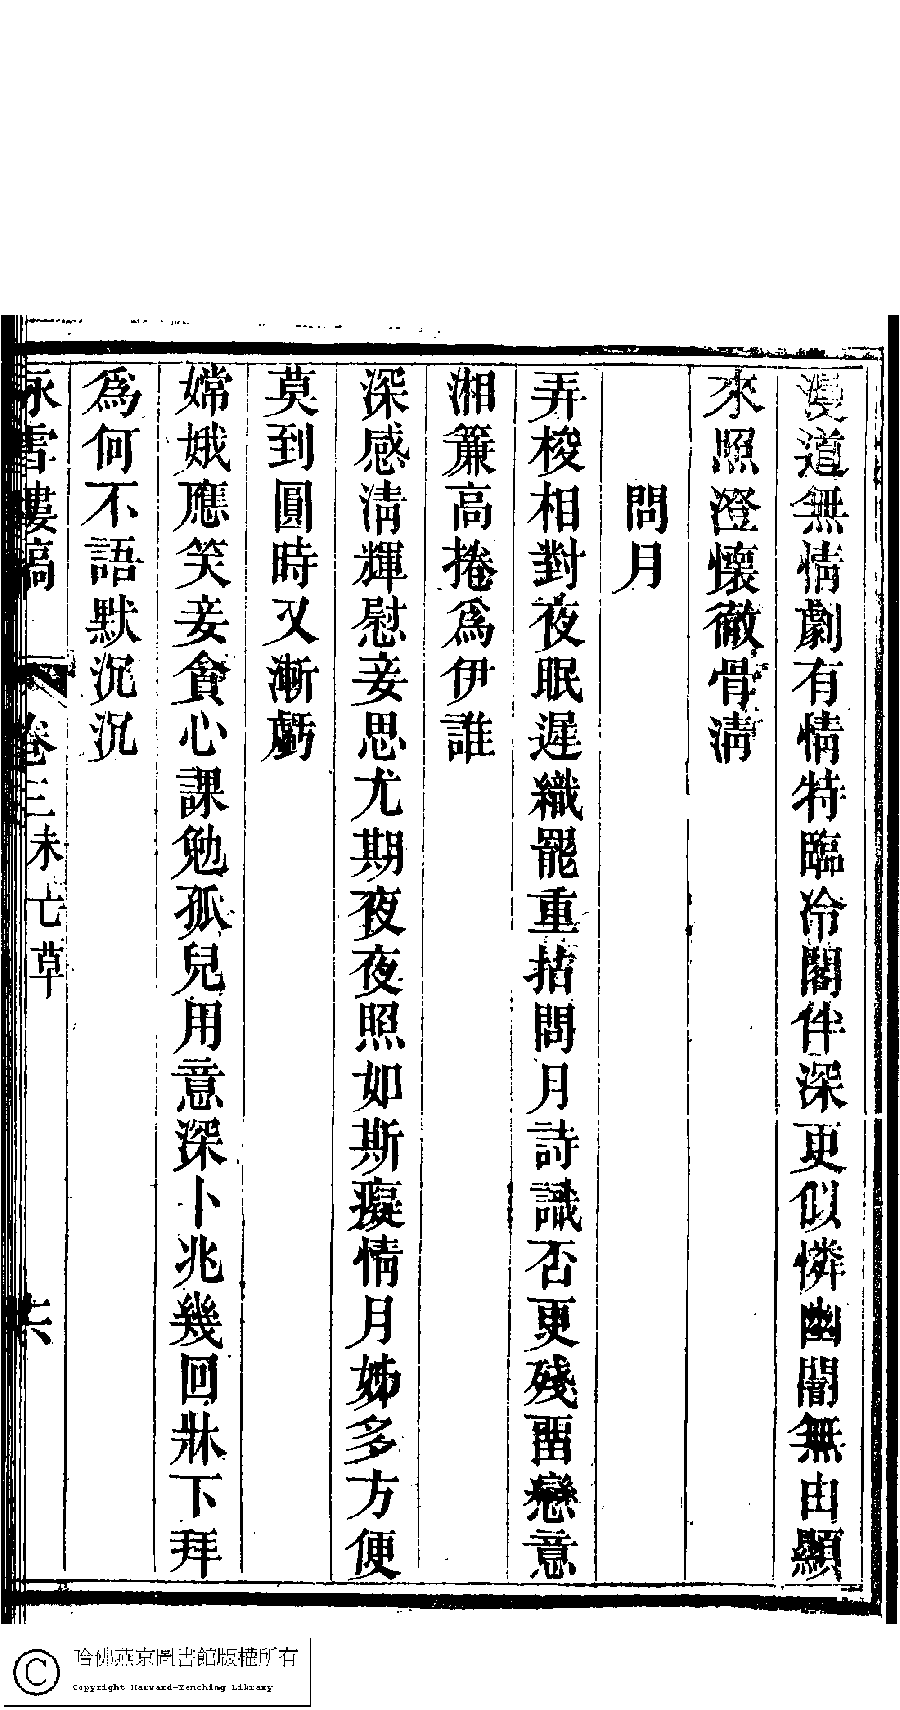 漫道無情劇有情特臨冷閣伴深更似憐幽闇無由顯
來照澄懷徹骨淸
問月
弄梭相對夜眠遲織罷重拈問月詩識否更殘畱戀意
湘簾高捲爲伊誰
深感淸輝慰妾思尤期夜夜照如斯癡情月姊多方便
莫到圓時又漸虧
嫦娥應笑妾貪心課勉孤兒用意深卜兆幾回牀下拜
爲何不語默沉沉
詠雪樓稿 卷三未亡草 六
哈佛燕京圖書館版權所有
Copyright Harvard-Yenching Library